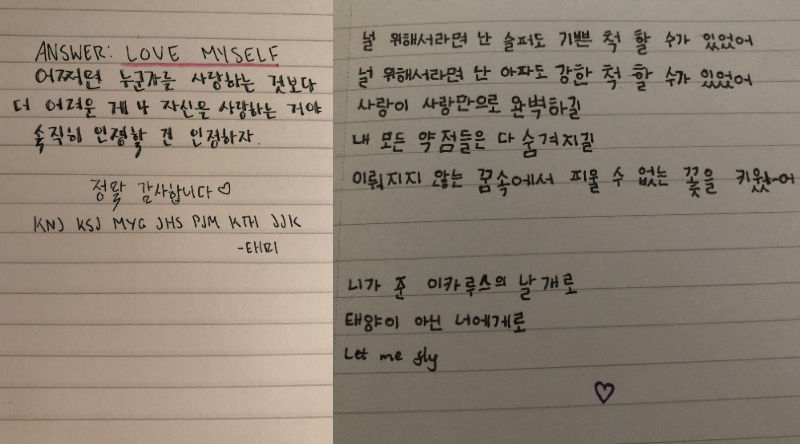 ANSWER: LOVE MYSELF
어쩌면 누군가를 사랑하는 것보다
더 어려운 게 나 자신을 사랑하는 거야
솔직히 인정할 건 인정하자.
정말 감사합니다♡
KNJ KSJ MYG JHS PJM KTH JJK
-태리
널 위해서라면 난 슬퍼도 기쁜 척 할 수가 있었어
널 위해서라면 난 아파도 강한 척 할 수가 있었어
사랑이 사랑만으로 완벽하길
내 모든 약점들은 다 숨겨지길
이뤄지지 않는 꿈속에서 피울 수 없는 꽃을 키웠어
니가 준 이카루스의 날개로
태양이 아닌 너에게로
Let me fly